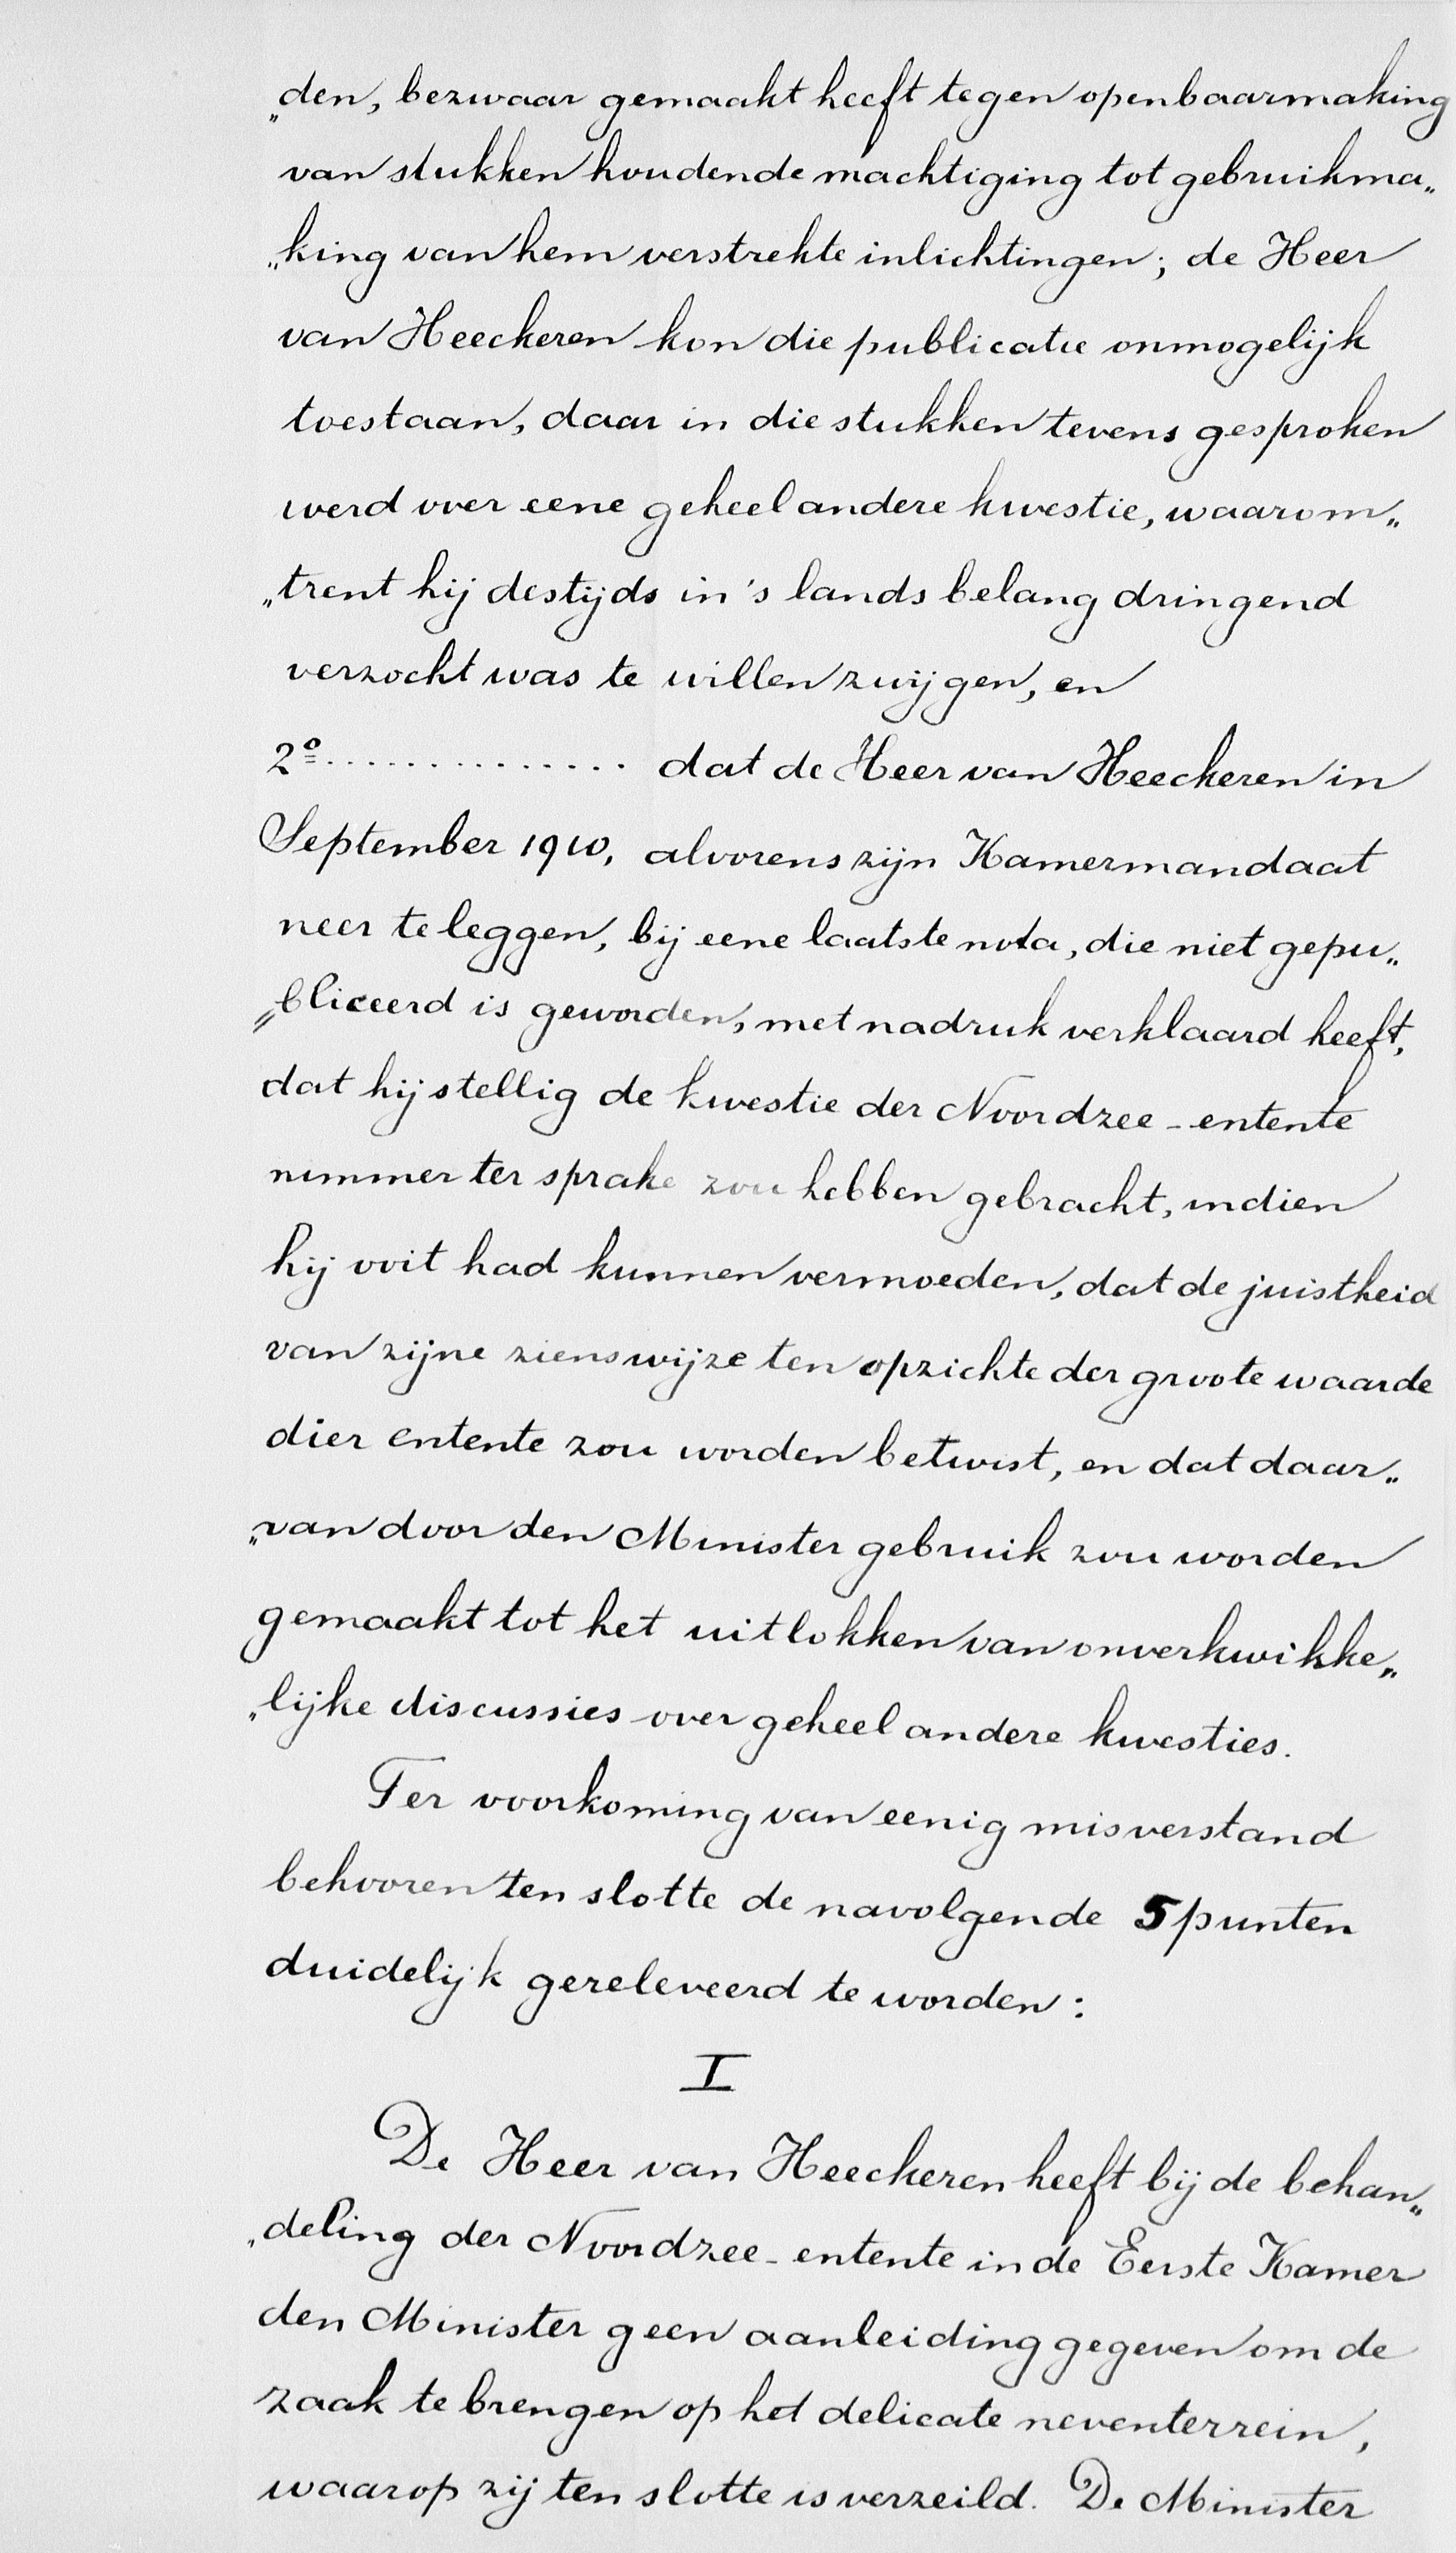 „den, bezwaar gemaakt heeft tegen openbaarmaking
van stukken houdende machtiging tot gebruikma„
„king van hem verstrekte inlichtingen; de Heer
van Heeckeren kon die publicatie onmogelijk
toestaan, daar in die stukken tevens gesproken
werd over eene geheel andere kwestie, waarom„
„trent hij destijds in 's lands belang dringend
verzocht was te willen zwijgen, en
2º............... dat de Heer van Heeckeren in
September 1910, alvorens zijn Kamermandaat
neer te leggen, bij eene laatste nota, die niet gepu„
„bliceerd is geworden, met nadruk verklaard heeft,
dat hij stellig de kwestie der Noordzee-entente
nimmer ter sprake zou hebben gebracht, indien
hij ooit had kunnen vermoeden, dat de juistheid
van zijne zienswijze ten opzichte der groote waarde
dier entente zou worden betwist, en dat daar„
„van door den Minister gebruik zou worden
gemaakt tot het uitlokken van onverkwikke„
„lijke discussies over geheel andere kwesties.
Ter voorkoming van eenig misverstand
behooren ten slotte de navolgende 5 punten
duidelijk gereleveerd te worden:
I
De Heer van Heeckeren heeft bij de behan„
„deling der Noordzee-entente in de Eerste Kamer
den Minister geen aanleiding gegeven om de
zaak te brengen op het delicate neventerrein,
waarop zij ten slotte is verzeild. De Minister